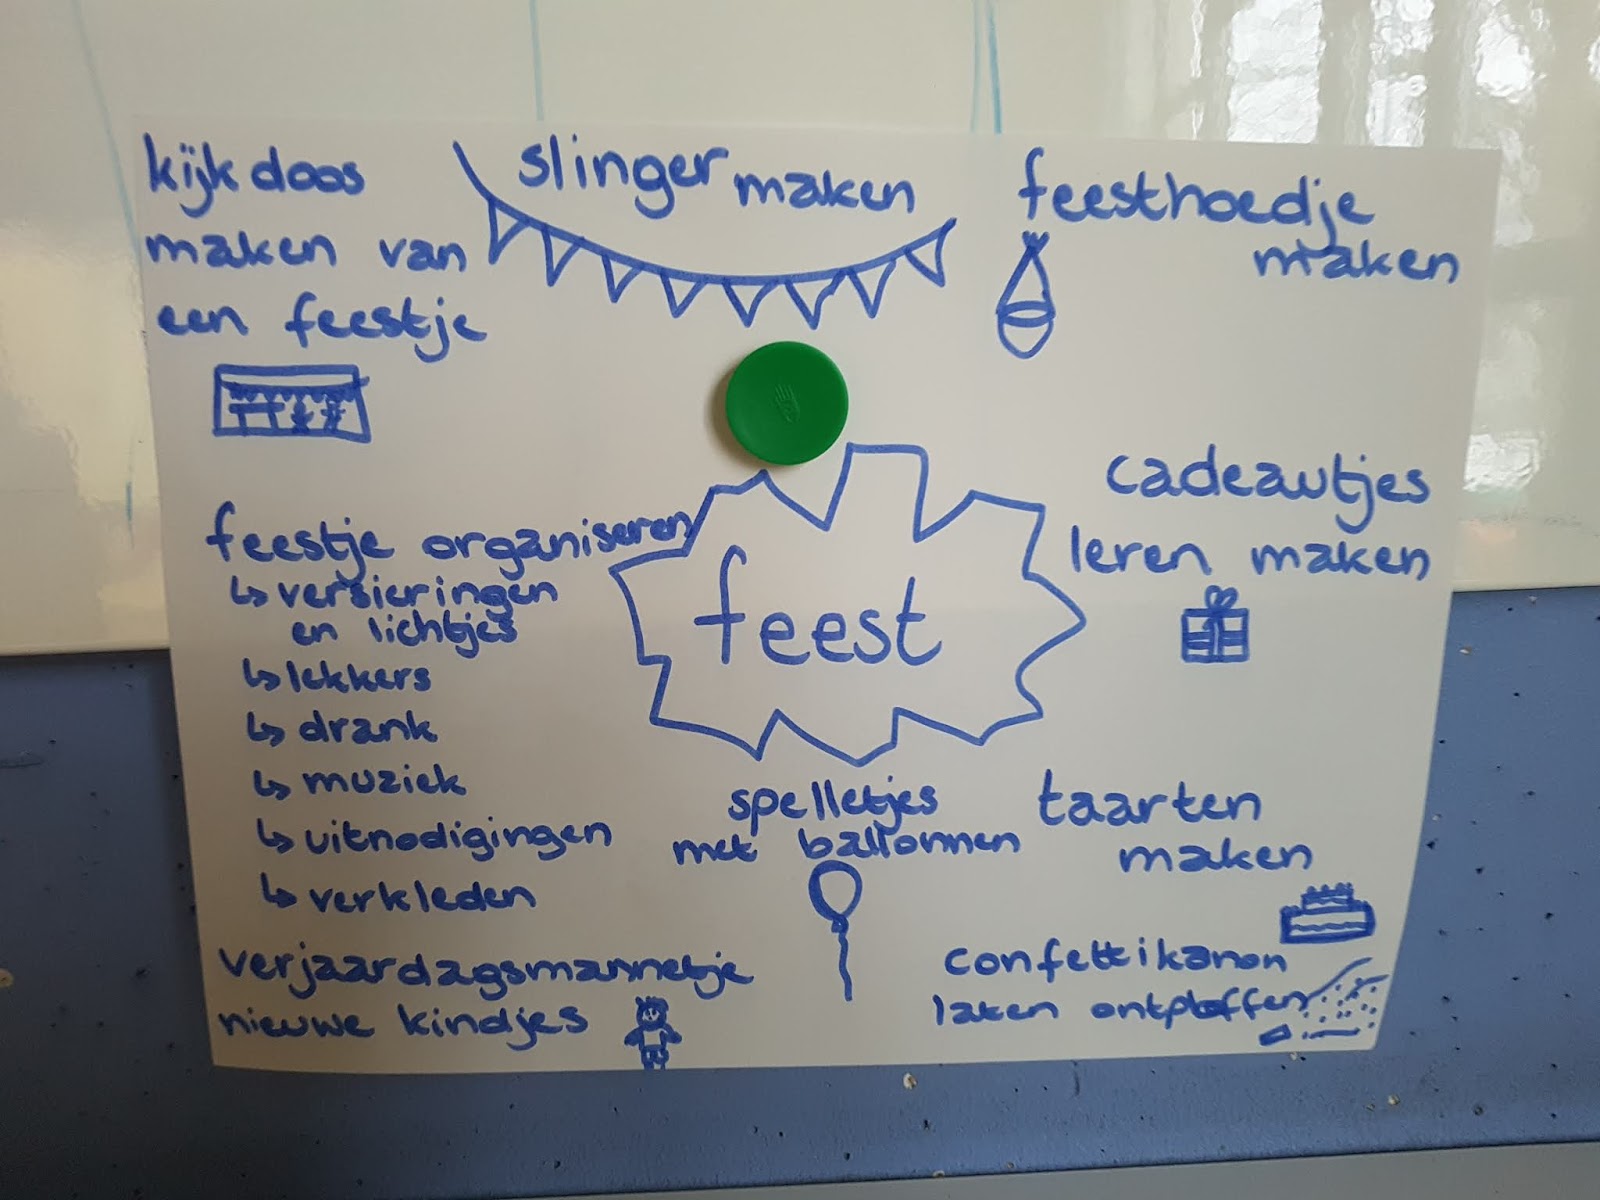 kijkdoos
maken van
een feestje
slinger maken
feesthoedje
maken
cadeautjes
leren maken
feest
feestje organiseren
↳ versieringen
en lichtjes
↳ lekkers
↳ drank
↳ muziek
↳ uitnodigingen
↳ verkleden
spelletjes
met ballonnen
taarten
maken
verjaardagsmannetje
nieuwe kindjes
confettikanon
laten ontploffen